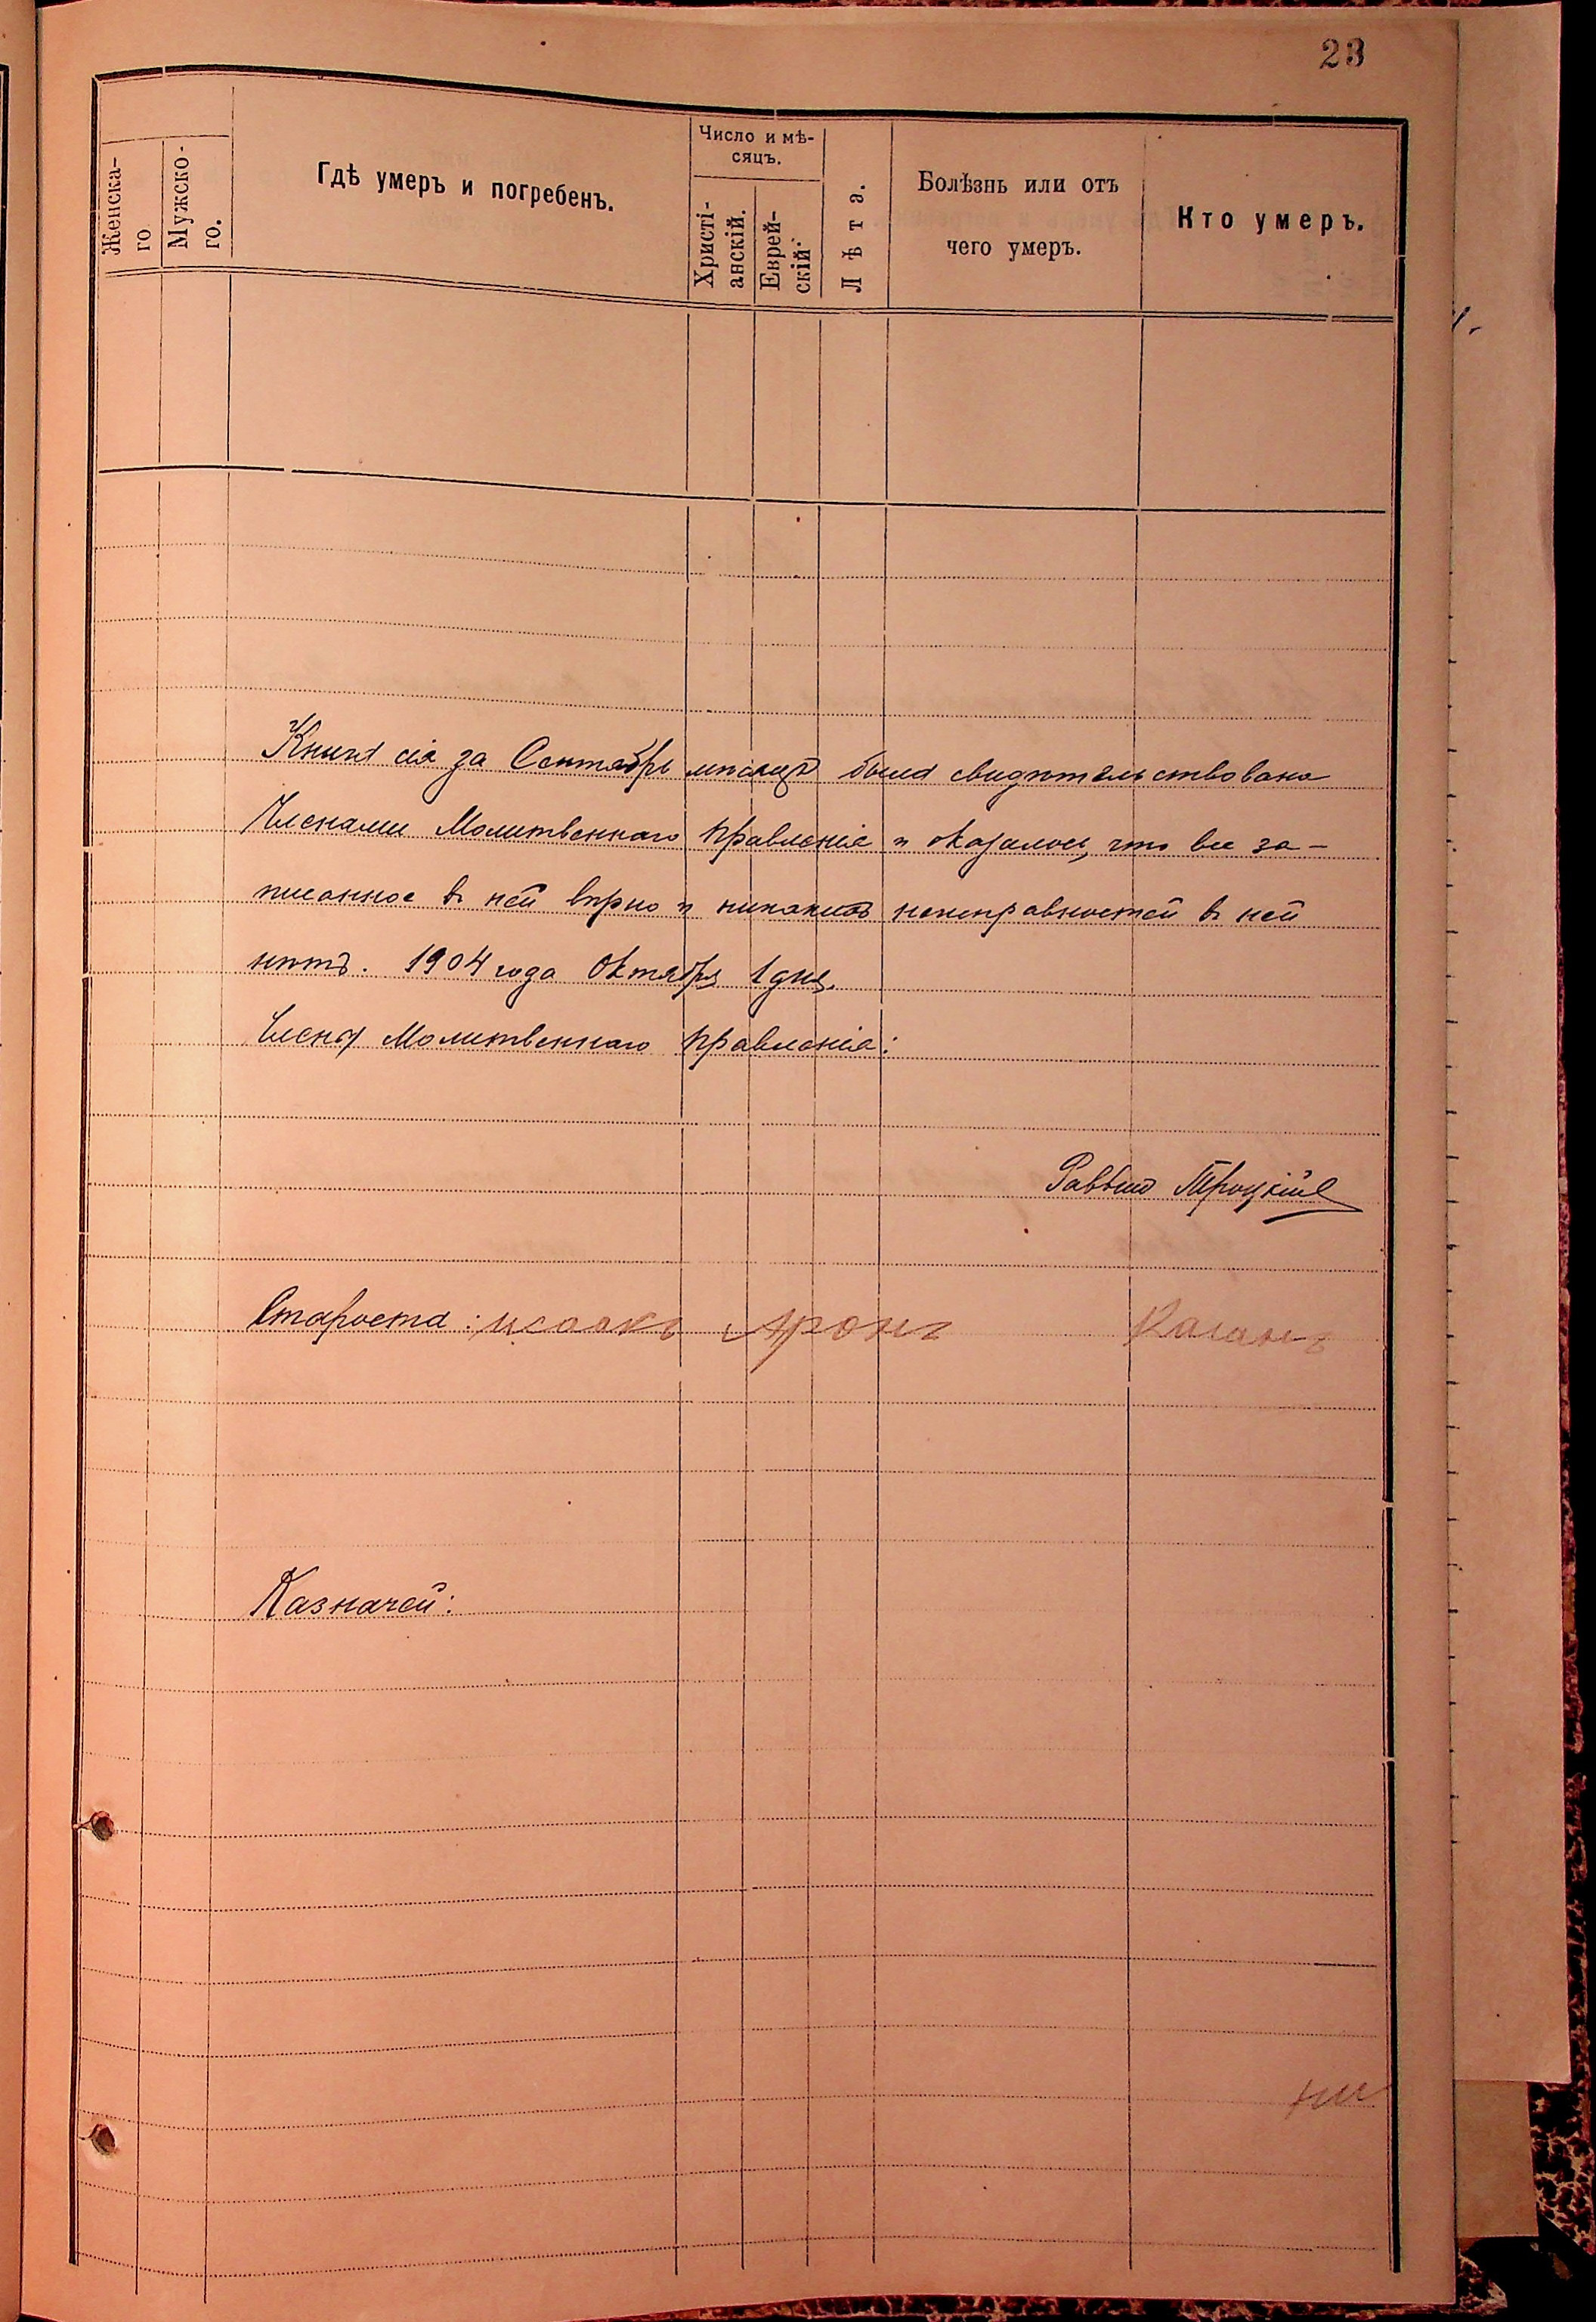 23
Женска-
го
Мужско-
го.
Гдѣ умеръ и погребенъ.
Число и мѣ-
сяцъ.
Христі-
анскій.
Еврей-
скій.
Лѣта.
Болѣзнь или отъ
чего умеръ.
Кто умеръ.
Книга сія за Сентябрь мѣсяцъ была свидѣтельствована
Членами Молитвеннаго Правленія и оказалось, что все за-
писанное въ ней вѣрно и никакихъ неисправностей въ ней
нѣтъ. 1904 года Октября 1 дня.
Члены Молитвеннаго Правленія:
Раввинъ Троцкій
Староста: исаакъ Аронъ Каганъ
Казначей: